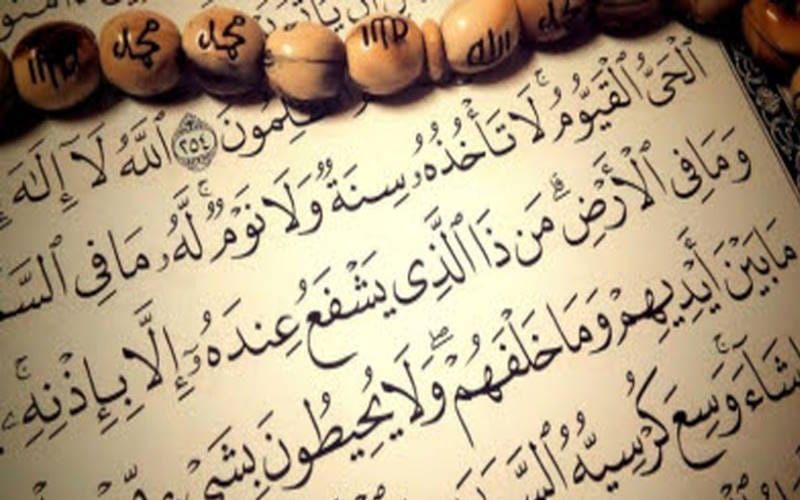 محمد محمد الله محمد
ٱللَّهُ لَآ إِلَـٰهَ ٢٥٤
ٱلْحَىُّ ٱلْقَيُّومُ ۚ لَا تَأْخُذُهُۥ سِنَةٌ وَلَا نَوْمٌ ۚ لَّهُۥ مَا فِى
وَمَا فِى ٱلْأَرْضِ ۗ مَن ذَا ٱلَّذِى يَشْفَعُ عِندَهُۥٓ إِلَّا بِإِذْنِهِۦ ۚ
مَا بَيْنَ أَيْدِيهِمْ وَمَا خَلْفَهُمْ ۖ وَلَا يُحِيطُونَ بِشَىْءٍ
شَآءَ ۚ وَسِعَ كُرْسِيُّهُ